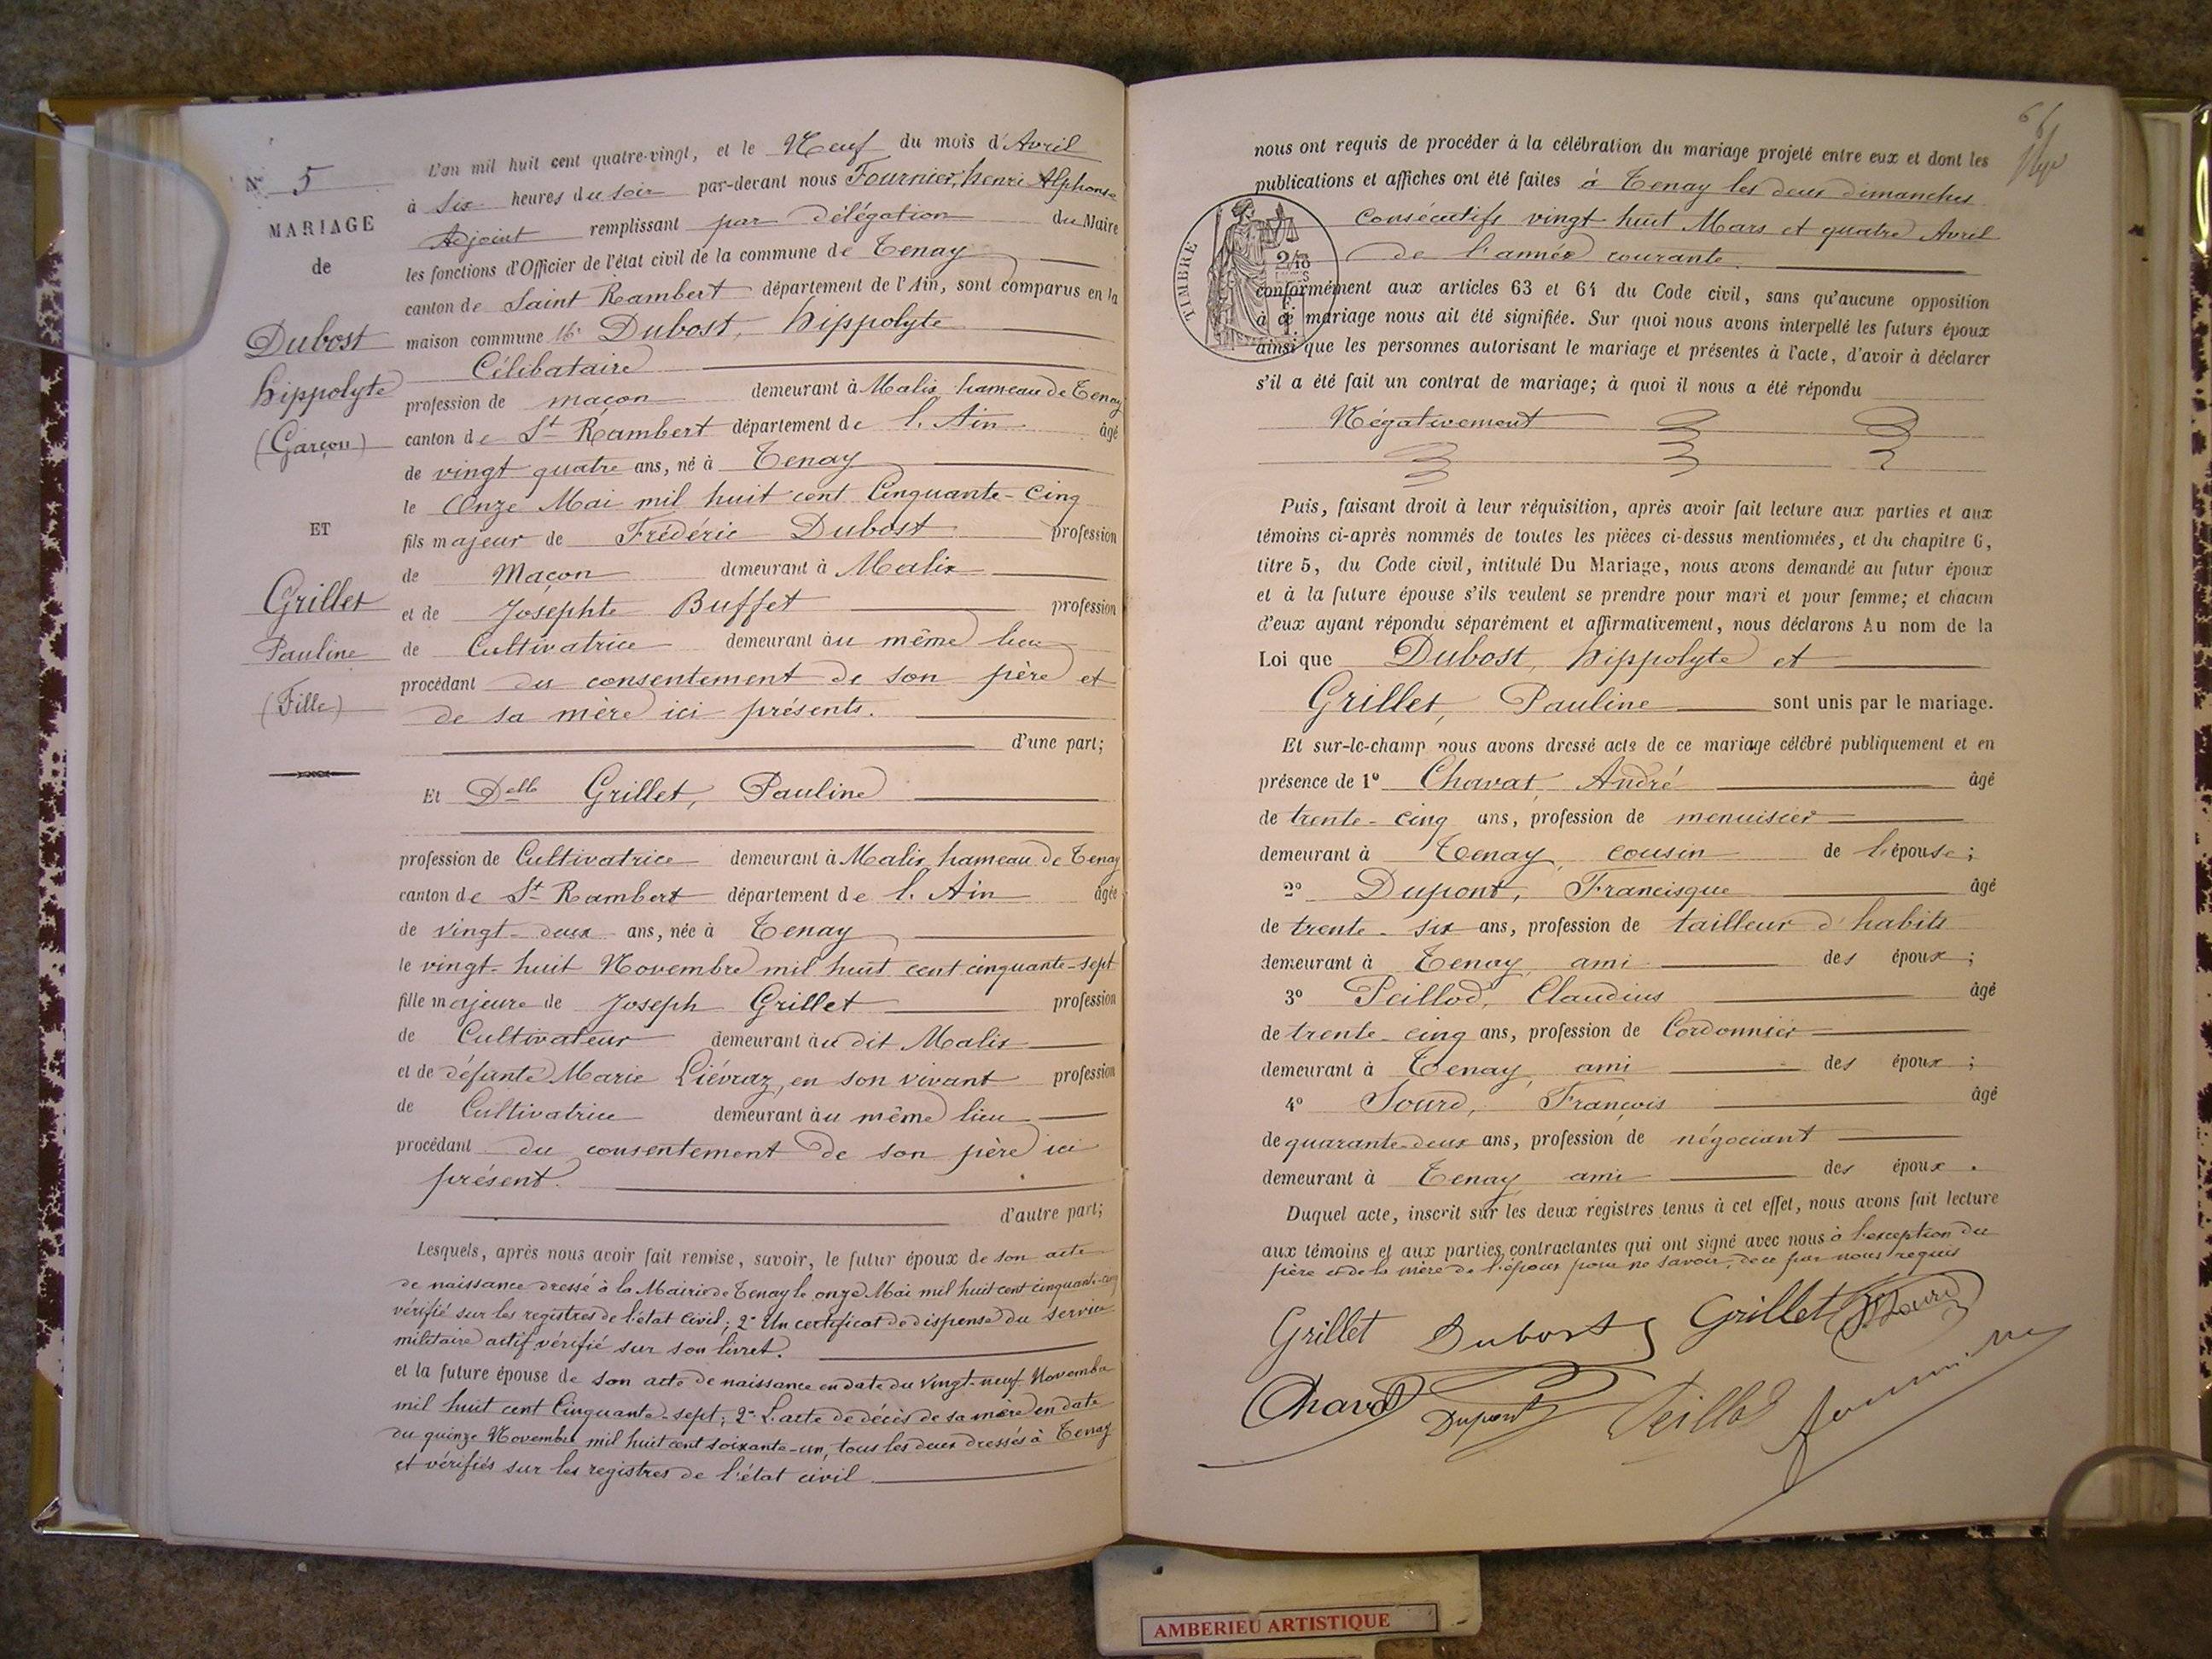 N° 5
MARIAGE
de
Dubost
Hippolyte
(Garçon)
ET
Grillet
Pauline
(Fille)
L'an mil huit cent quatre-vingt, et le Neuf du mois d'Avril
à Six heures du soir par-devant nous Fournier, henri Alphonse
Adjoint remplissant par délégation du Maire
les fonctions d'Officier de l'état civil de la commune de Tenay
canton de Saint Rambert département de l'Ain, sont comparus en la
maison commune Mr Dubost, hippolyte
Célibataire
profession de maçon demeurant à Malix hameau de Tenay
canton de St Rambert département de l'Ain âgé
de vingt quatre ans, né à Tenay
le Onze Mai mil huit cent Cinquante-Cinq
fils majeur de Frédéric Dubost profession
de Maçon demeurant à Malix
et de Josephte Buffet profession
de Cultivatrice demeurant au même lieu
procédant du consentement de son père et
de sa mère ici présents.
d'une part;
Et Delle Grillet, Pauline
profession de Cultivatrice demeurant à Malix hameau de Tenay
canton de St Rambert département de l'Ain âgée
de vingt-deux ans, née à Tenay
le vingt-huit Novembre mil huit cent cinquante-sept
fille majeure de Joseph Grillet profession
de Cultivateur demeurant au dit Malix
et de défunte Marie Liévraz, en son vivant profession
de Cultivatrice demeurant au même lieu
procédant du consentement de son père ici
présent.
d'autre part;
Lesquels, après nous avoir fait remise, savoir, le futur époux de son acte
de naissance dressé à la Mairie de Tenay le onze Mai mil huit cent cinquante-cinq
vérifié sur les registres de l'état civil; 2° Un certificat de dispense du service
militaire actif vérifié sur son livret.
et la future épouse de son acte de naissance en date du vingt-neuf Novembre
mil huit cent Cinquante-sept; 2° L'acte de décès de sa mère en date
du quinze Novembre mil huit cent soixante-un, tous les deux dressés à Tenay
et vérifiés sur les registres de l'état civil
66
nous ont requis de procéder à la célébration du mariage projeté entre eux et dont les
publications et affiches ont été faites à Tenay les deux dimanches
consécutifs vingt-huit Mars et quatre Avril
de l'année courante.
TIMBRE
2/10
S
conformément aux articles 63 et 64 du Code civil, sans qu'aucune opposition
à ce mariage nous ait été signifiée. Sur quoi nous avons interpellé les futurs époux
ainsi que les personnes autorisant le mariage et présentes à l'acte, d'avoir à déclarer
s'il a été fait un contrat de mariage; à quoi il nous a été répondu
Négativement
Puis, faisant droit à leur réquisition, après avoir fait lecture aux parties et aux
témoins ci-après nommés de toutes les pièces ci-dessus mentionnées, et du chapitre 6,
titre 5, du Code civil, intitulé Du Mariage, nous avons demandé au futur époux
et à la future épouse s'ils veulent se prendre pour mari et pour femme; et chacun
d'eux ayant répondu séparément et affirmativement, nous déclarons Au nom de la
Loi que Dubost, hippolyte et
Grillet, Pauline sont unis par le mariage.
Et sur-le-champ nous avons dressé acte de ce mariage célébré publiquement et en
présence de 1° Chavat, André âgé
de trente-cinq ans, profession de menuisier
demeurant à Tenay, cousin de l'épouse;
2° Dupont, Francisque âgé
de trente-six ans, profession de tailleur d'habits
demeurant à Tenay ami des époux;
3° Peillod, Claudius âgé
de trente-cinq ans, profession de Cordonnier
demeurant à Tenay ami des époux;
4° Sourd, François âgé
de quarante-deux ans, profession de négociant
demeurant à Tenay ami des époux.
Duquel acte, inscrit sur les deux registres tenus à cet effet, nous avons fait lecture
aux témoins et aux parties contractantes qui ont signé avec nous à l'exception du
père et de la mère de l'époux pour ne savoir, de ce par nous requis
Grillet Dubost Grillet Sourd
Chavat Dupont Peillod
AMBERIEU ARTISTIQUE